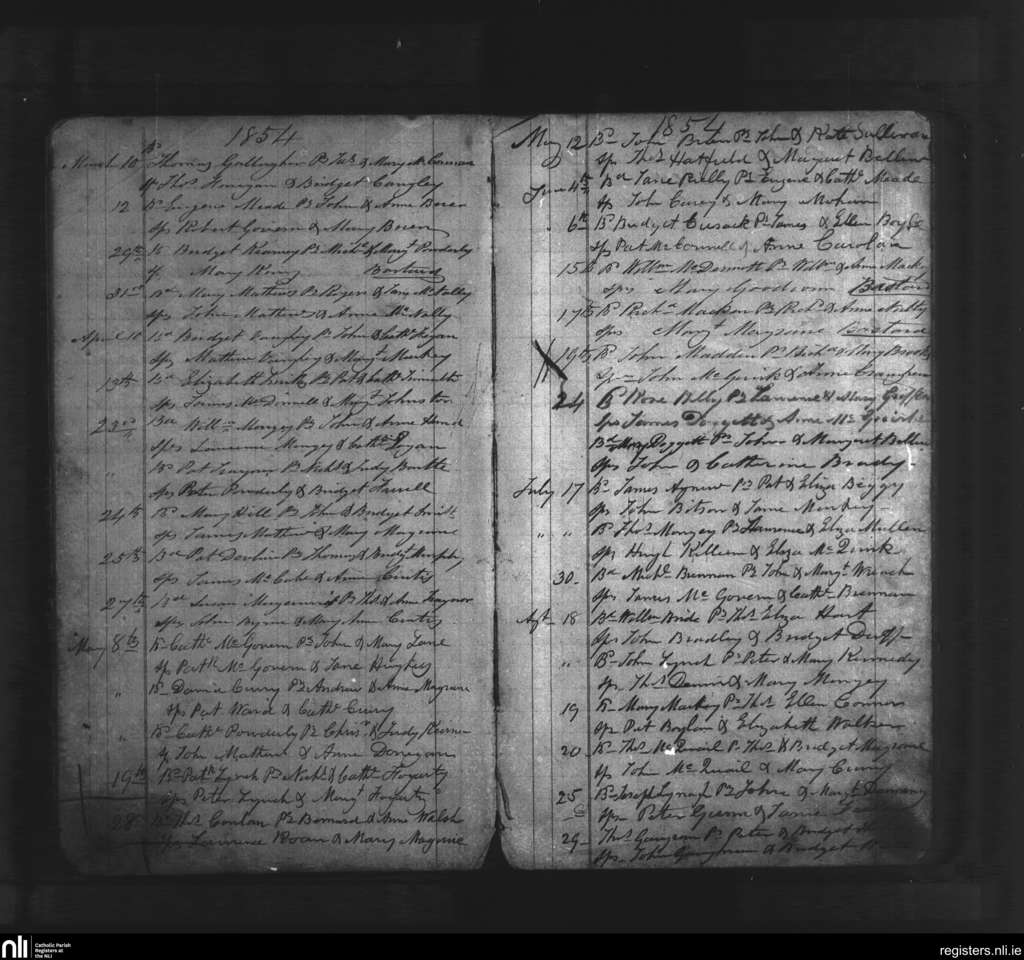 1854
March 10 Bd Thomas Gallagher Ps Jas & Mary McCorman
Sps Thos Finegan & Bridget Langley
12 Bd Eugene Meade Ps John & Anne Boren
Sps Robert Govern & Mary Boren
29th Bd Bridget Kearney Ps Michl & Margt Ponderly
Sp Mary Bastard
31st Bd Mary Mathews Ps Roger & Jane McNally
Sps John Mathews & Anne McNally
April 10 Bd Bridget Ps John & Cathe Fegan
Sps Mathew & Margt Markey
13th Bd Elizabeth Ps Pat & Cathe
Sps James McDonnell & Margt Johnston
23rd Bd Willm Mongey Ps John & Anne Hand
Sps Lawrence Mongey & Cathe Logan
" Bd Pat Traynor Ps Nichs & Judy
Sps Peter Ponderly & Bridget Farrell
24th Bd Mary Hill Ps John & Bridget Smith
Sps James Mathews & Mary Maguire
25th Bd Pat Devlin Ps Thomas & Bridgt Murphy
Sps James McCabe & Anne Curtis
27th Bd Susan Ps Thos & Ann Traynor
Sps John Byrne & Mary Ann Curtis
May 8th Bd Cathe McGovern Ps John & Mary Lane
Sps Patk McGovern & Jane Hughes
" Bd Curry Ps Andrew & Anne Magrane
Sps Pat Ward & Cathe Curry
" Bd Cathe Ponderly Ps Christr & Judy
Sps John Mathews & Anne Donegan
19th Bd Patk Lynch Ps Nichs & Cathe Fogarty
Sps Peter Lynch & Margt Fogarty
28 Bd Thos Conlan Ps Bernard & Anne Walsh
Sps Lawrence Roan & Mary Maguire
1854
May 12 Bd John Ps John & Kate Sullivan
Sps Thos Hatfield & Margaret Bellew
June 4th Bd Jane Reilly Ps Eugene & Cathe Meade
Sps John Carey & Mary
6th Bd Bridget Cusack Ps James & Ellen Boyle
Sps Pat McConnell & Anne Carolan
15th Bd Willm McDermott Ps Willm & Ann Mackey
Sps Mary Goodwin Bastard
17th Bd Richd Madden Ps Richd & Anne
Sps Margt Magrane Bastard
19th Bd John Madden Ps Richd & Mary Brooks
Sps John McGurk & Anne Crampton
24 Bd Rose Reilly Ps Lawrence & Mary
Sps James Doggett & Anne
Bd Mary Doggett Ps John & Margaret Bellew
Sps John & Catherine Brady
July 17 Bd James Agnew Ps Pat & Eliza Beggy
Sps John Bitson & Jane
" " Bd Thos Mongey Ps Lawrence & Eliza Mullen
Sps Hugh Killeen & Eliza McQuirk
30 Bd Michl Brennan Ps John & Margt
Sps James McGovern & Cathe Brennan
Agt 18 Bd Willm Bride Ps Thos Eliza Hart
Sps John Bradley & Bridget Duff
" Bd John Lynch Ps Peter & Mary Kennedy
Sps Thos & Mary Mongey
19 Bd Mary Mackey Ps Thos Ellen Connor
Sps Pat Boylan & Elizabeth Walker
20 Bd Thos McQuail Ps Thos & Bridget Magrane
Sps John McQuail & Mary Curry
25 Bd Joseph Lynagh Ps John & Margt
Sps Peter & Jane
29 Thos Ps Peter & Bridget
Sps John & Bridget
nli Catholic Parish
Registers at
the NLI
registers.nli.ie